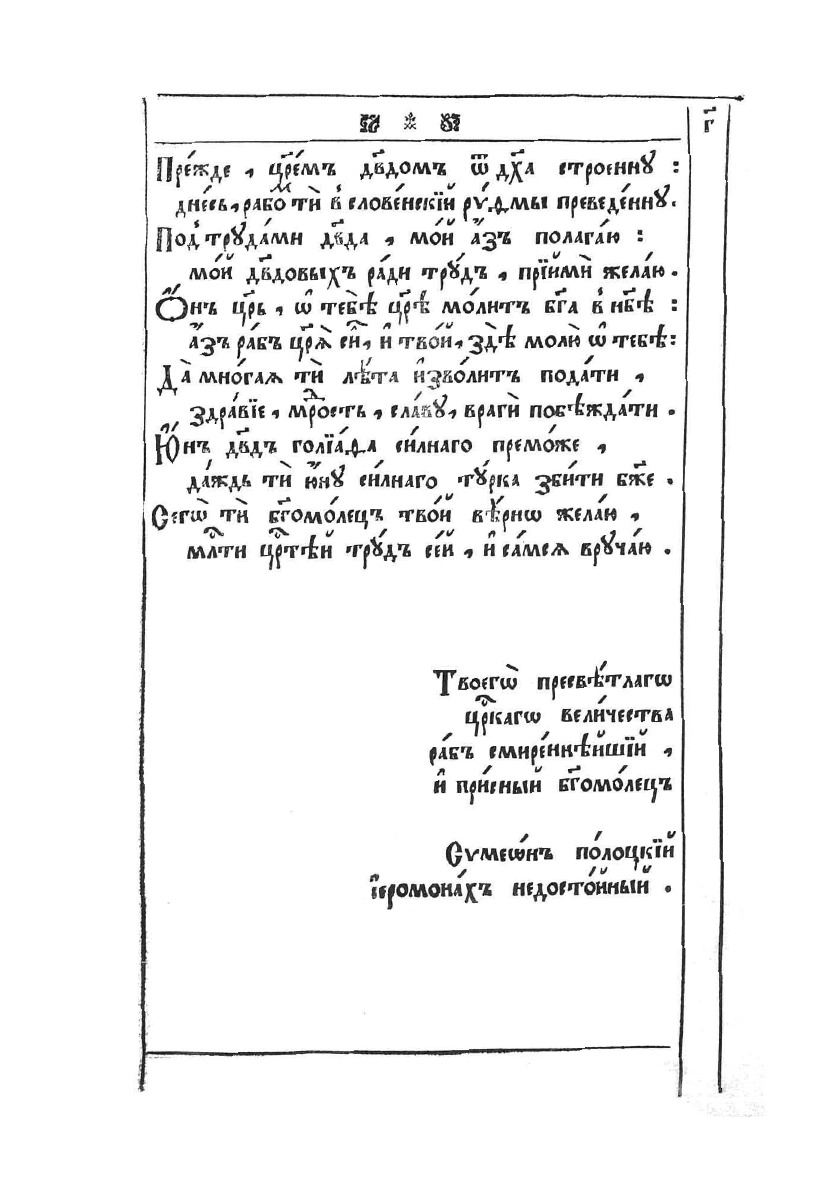 г҃
Пре́жде , цр҃е́мъ дв҃домъ ѿ дх҃а строенну :
дне́сь , рабо́м тѝ в̾ слове́нскїй рѵ́ѳмы преведе́нну .
Под̾ труда́ми дв҃да , мо́й а҆́зъ полага́ю :
мо́й дв҃довыхъ ра́ди трꙋ́дъ , прїимѝ жела́ю .
Ѻ҆́нъ цр҃ь , ѡ҆ тебѐ цр҃ѣ мо́литъ бг҃а в̾ нб҃ѣ :
а҆́зъ ра́бъ цр҃ѧ̀ се́й , и҆ тво́й , здѣ̀ молю̀ ѡ҆ тебѣ̀ :
Да̀ мно́гаѧ тѝ лѣ́та и҆зво́литъ пода́ти ,
здра́вїе , мрⷣость , сла́ву , врагѝ побѣжда́ти .
Ю҆́нъ дв҃дъ голїа́ѳа си́лнаго премо́же ,
да́ждь тѝ ю҆́ну си́лнаго ту́рка зби́ти бж҃е .
Сегѡ̀ тѝ бг҃омо́лецъ тво́й вѣ́рнѡ жела́ю ,
млⷭ҇ти црⷭ҇тѣй трꙋ́дъ се́й , и҆ са́мсѧ вруча́ю .
Твоегѡ̀ пресвѣ́тлагѡ
црⷭ҇кагѡ вели́чества
ра́бъ смире́ннѣйшїй ,
и҆ при́сный бг҃омо́лецъ
Сѵмеѡ́нъ по́лоцкїй
і҆еромона́хъ недосто́йный .